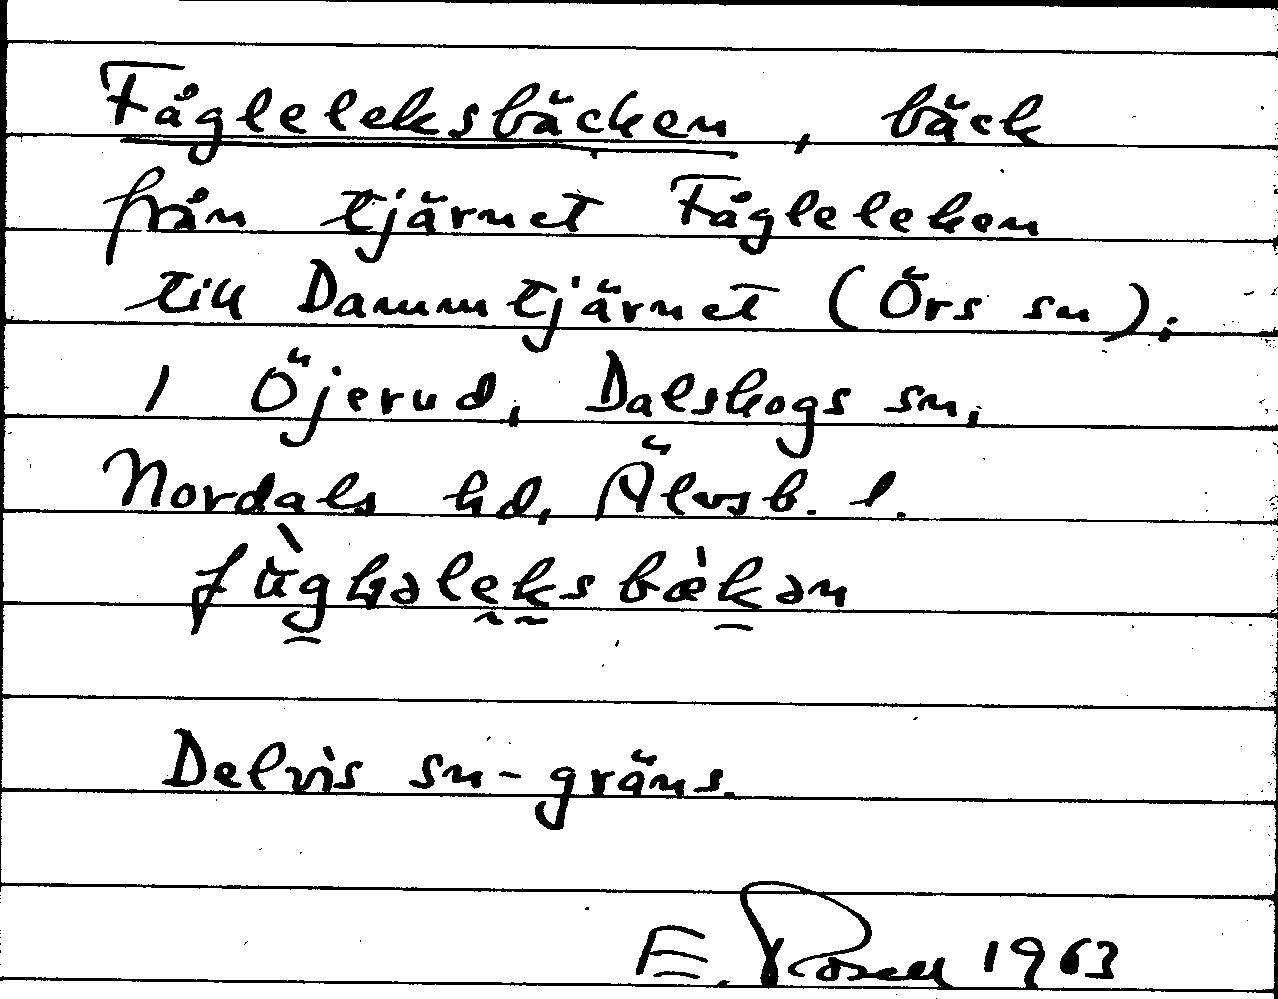 Fågleleksbäcken, bäck
från tjärnet Fågleleken
till Dammtjärnet (Örs sn);
1 Öjerud, Dalskogs sn,
Nordals hd, Älvsb. l.
Delvis sn-gräns.
E. Rosell 1963